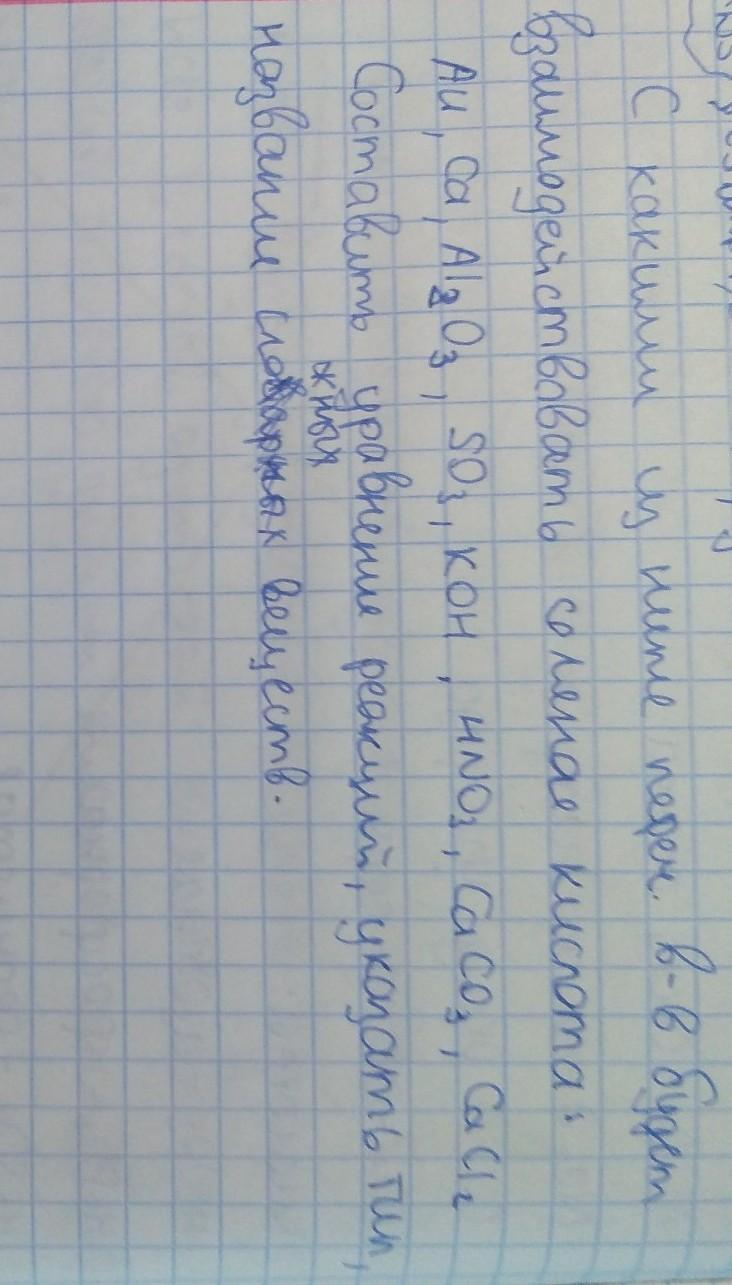 С какими из ниже переч. в-в будет
взаимодействовать соленая кислота:
Au, Ca, Al2O3, SO3, KOH, HNO3, CaCO3, CaCl2
Составить уравнение реакций, указать тип,
жных
название сло веществ.